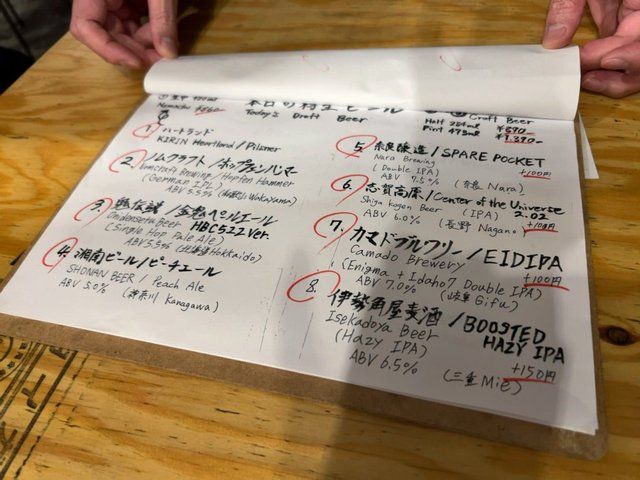 本日の樽生ビール
Today's Draft Beer
Craft Beer
Half 284ml ¥890
Pint 473ml ¥1,390
1. ハートランド
KIRIN Heartland / Pilsner
2. ノムクラフト / ホップフェンハンマー
Nomcraft Brewing / Hopfen Hammer
(German IPL)
ABV 5.5% (和歌山 Wakayama)
3. 鬼伝説 / 金鬼ペールエール
Onidensetsu Beer HBC522 Ver.
(Single Hop Pale Ale)
ABV 5.5% (北海道 Hokkaido)
4. 湘南ビール / ピーチエール
SHONAN BEER / Peach Ale
ABV 5.0% (神奈川 Kanagawa)
5. 奈良醸造 / SPARE POCKET
Nara Brewing
(Double IPA) +100円
ABV 7.5% (奈良 Nara)
6. 志賀高原 / Center of the Universe
Shiga Kogen Beer (IPA) 2.02
ABV 6.0% (長野 Nagano) +100円
7. カマドブルワリー / EIDIPA
Camado Brewery
(Enigma + Idaho7 Double IPA) +100円
ABV 7.0% (岐阜 Gifu)
8. 伊勢角屋麦酒 / BOOSTED
Isekadoya Beer HAZY IPA
(Hazy IPA) +150円
ABV 6.5% (三重 Mie)